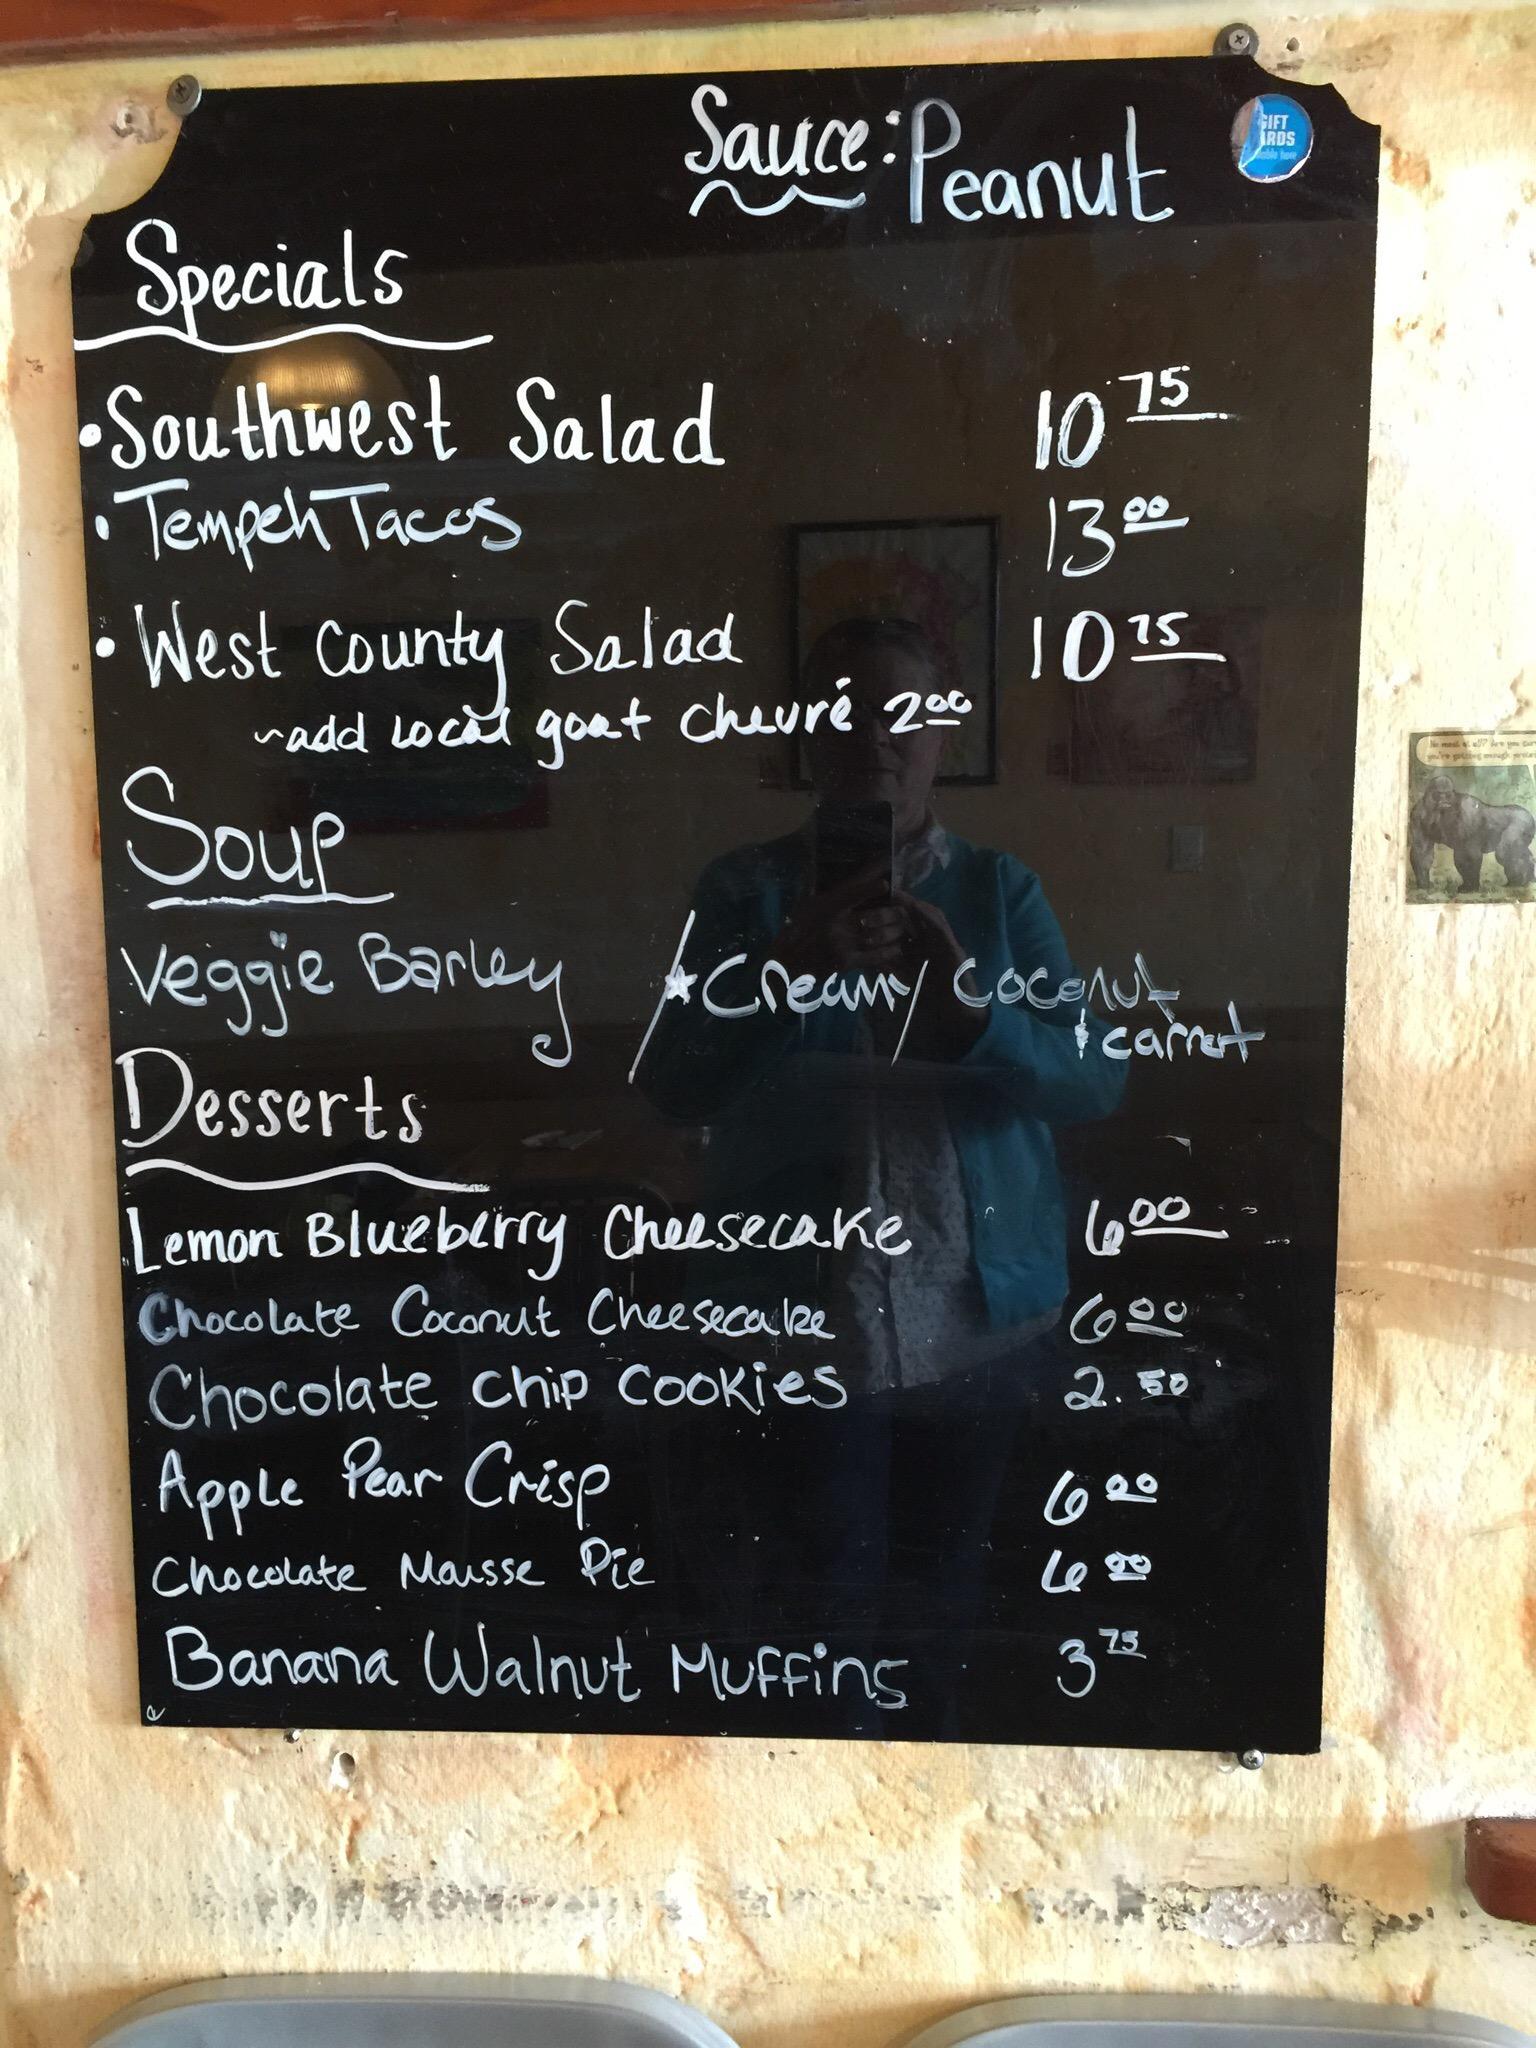 Sauce: Peanut
GIFT
Specials
• Southwest Salad 10 75
• Tempeh Tacos 13 00
• West County Salad 10 75
~add local goat chevré 2 00
Soup
Veggie Barley / ★Creamy / Coconut
& carrot
Desserts
Lemon Blueberry Cheesecake 6 00
Chocolate Coconut Cheesecake 6 00
Chocolate Chip Cookies 2.50
Apple Pear Crisp 6 00
Chocolate Mousse Pie 6 00
Banana Walnut Muffins 3 75
No meat at all? Are you sure
you're getting enough protein